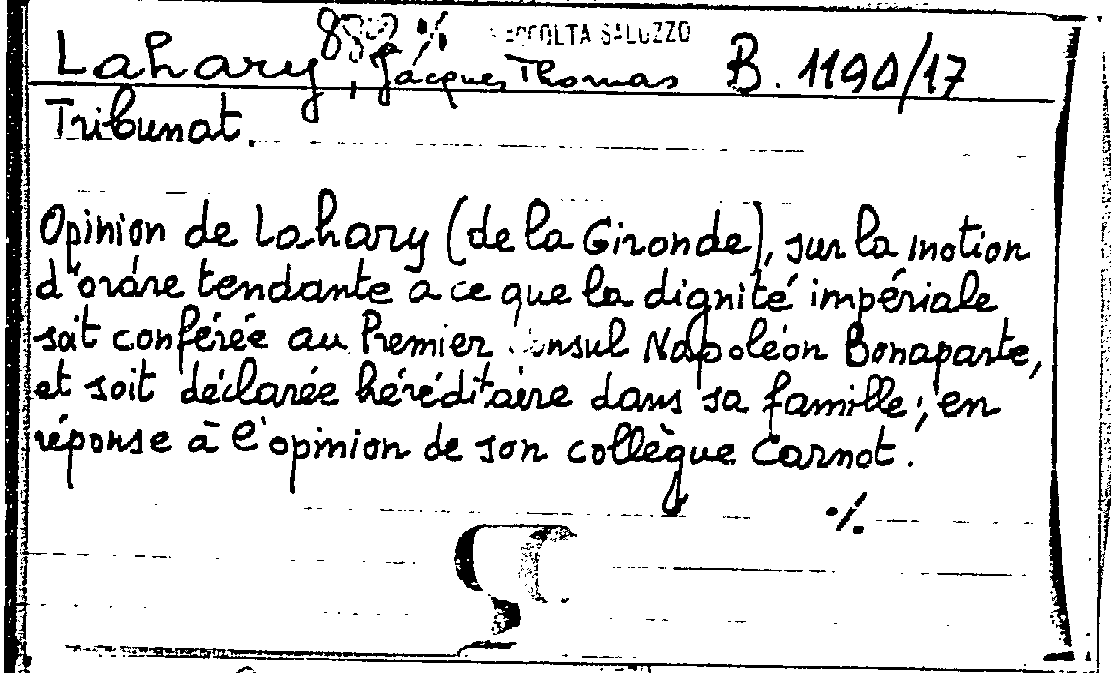 882 ./.
RACCOLTA SALUZZO
Lahary, Jacques Thomas B. 1190/17
Tribunat.
Opinion de Lahary (de la Gironde), sur la motion
d'ordre tendante a ce que la dignité impériale
soit conférée au Premier Consul Napoléon Bonaparte,
et soit déclarée héréditaire dans sa famille; en
réponse à l'opinion de son collègue Carnot.
./.